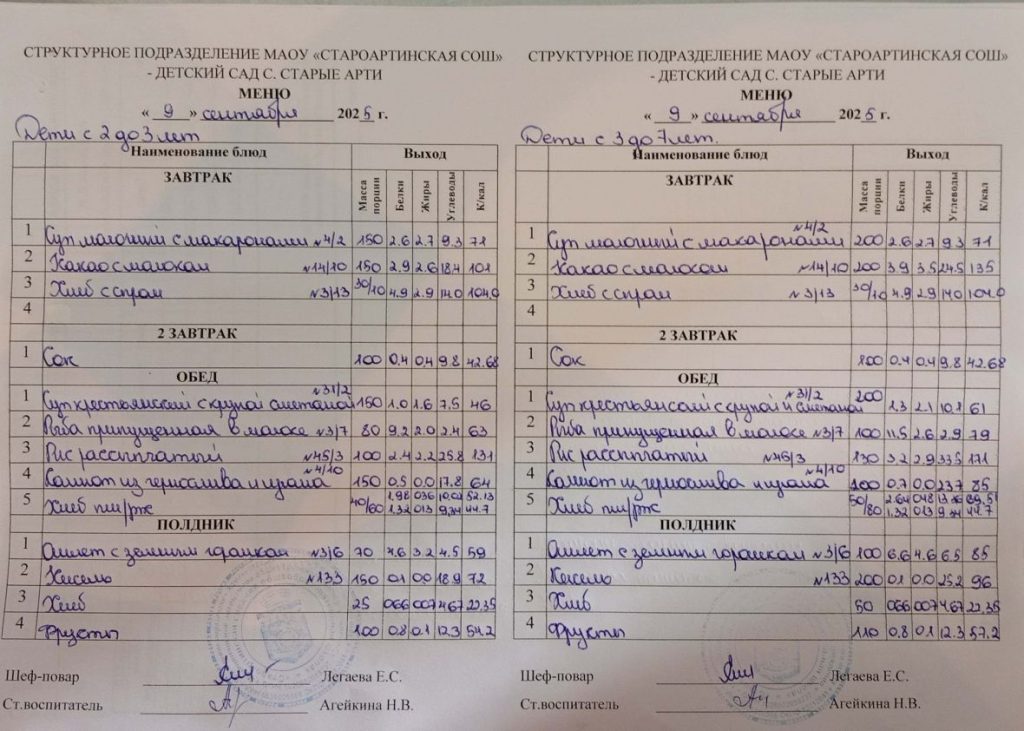 СТРУКТУРНОЕ ПОДРАЗДЕЛЕНИЕ МАОУ «СТАРОАРТИНСКАЯ СОШ»
- ДЕТСКИЙ САД С. СТАРЫЕ АРТИ
МЕНЮ
« 9 » сентября 2025 г.
Дети с 2 до 3 лет
Наименование блюд Выход
ЗАВТРАК Масса порции Белки Жиры Углеводы К/кал
1 Суп молочный с макаронами №4/2 150 2.6 2.7 9.3 71
2 Какао с молоком №14/10 150 2.9 2.6 18.4 101
3 Хлеб с сыром №3/13 30/10 4.9 2.9 14.0 104.0
4
2 ЗАВТРАК
1 Сок 100 0.4 0.4 9.8 42.68
ОБЕД
1 Суп крестьянский с крупой сметаной №31/2 150 1.0 1.6 7.5 46
2 Рыба припущенная в молоке №3/7 80 9.2 2.0 2.4 63
3 Рис рассыпчатый №45/3 100 2.4 2.2 25.8 131
4 Компот из чернослива и изюма №4/10 150 0.5 0.0 17.8 64
5 Хлеб пш/рж 40/60 1.98 0.36 52.13
1.32 0.13 9.34 44.7
ПОЛДНИК
1 Омлет с зеленым горошком №3/6 70 4.6 3.2 4.5 59
2 Кисель №133 150 0.1 0.0 18.9 72
3 Хлеб 25 0.66 0.07 4.67 22.35
4 Фрукты 100 0.8 0.1 12.3 54.2
Шеф-повар Легаева Е.С.
Ст.воспитатель Агейкина Н.В.
СТРУКТУРНОЕ ПОДРАЗДЕЛЕНИЕ МАОУ «СТАРОАРТИНСКАЯ СОШ»
- ДЕТСКИЙ САД С. СТАРЫЕ АРТИ
МЕНЮ
« 9 » сентября 2025 г.
Дети с 3 до 7 лет.
Наименование блюд Выход
ЗАВТРАК Масса порции Белки Жиры Углеводы К/кал
1 Суп молочный с макаронами №4/2 200 2.6 2.7 9.3 71
2 Какао с молоком №14/10 200 3.9 3.5 24.5 135
3 Хлеб с сыром №3/13 30/10 4.9 2.9 14.0 104.0
4
2 ЗАВТРАК
1 Сок 100 0.4 0.4 9.8 42.68
ОБЕД
1 Суп крестьянский с крупой и сметаной №31/2 200 1.3 2.1 10.1 61
2 Рыба припущенная в молоке №3/7 100 11.5 2.6 2.9 79
3 Рис рассыпчатый №45/3 130 3.2 2.9 33.5 171
4 Компот из чернослива и изюма №4/10 0.7 0.0 23.7 85
5 Хлеб пш/рж 50/80 2.64 0.48 89.51
1.32 0.13 9.34 44.7
ПОЛДНИК
1 Омлет с зеленым горошком №3/6 100 6.6 4.6 6.5 85
2 Кисель №133 200 0.1 0.0 25.2 96
3 Хлеб 50 0.66 0.07 4.67 22.35
4 Фрукты 110 0.8 0.1 12.3 57.2
Шеф-повар Легаева Е.С.
Ст.воспитатель Агейкина Н.В.